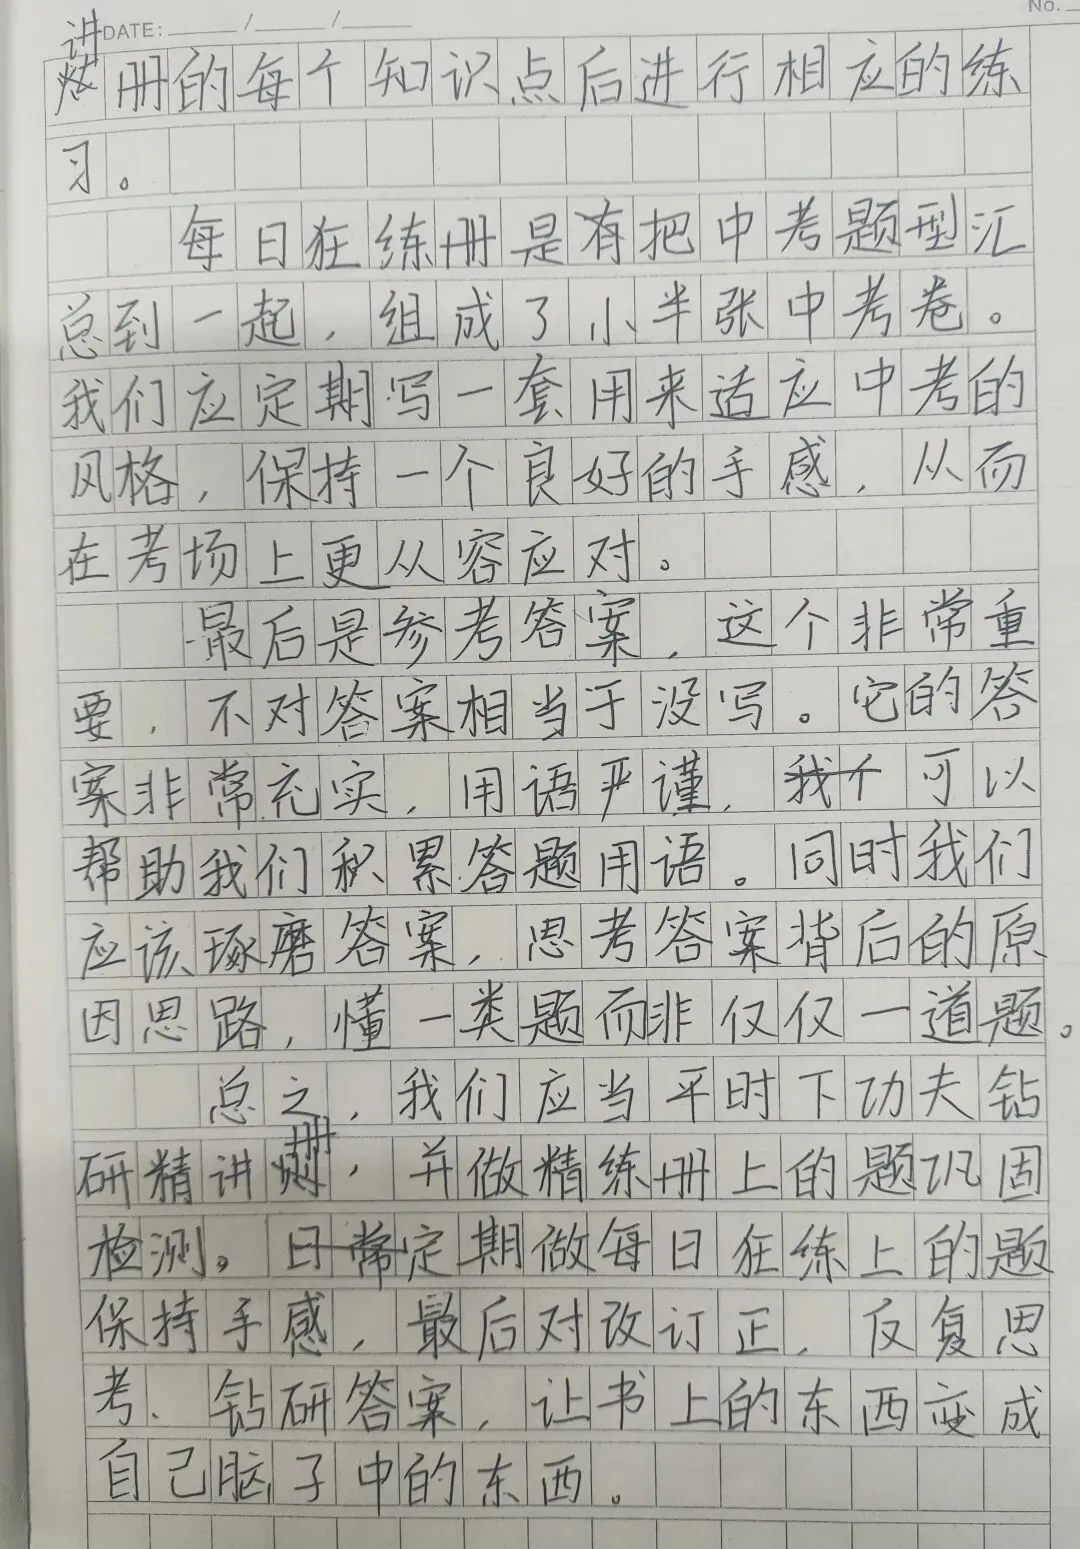 No.
DATE: / /
讲册的每个知识点后进行相应的练
习。
每日狂练册是有把中考题型汇
总到一起，组成了小半张中考卷。
我们应定期写一套用来适应中考的
风格，保持一个良好的手感，从而
在考场上更从容应对。
最后是参考答案，这个非常重
要，不对答案相当于没写。它的答
案非常充实，用语严谨，我个可以
帮助我们积累答题用语。同时我们
应该琢磨答案，思考答案背后的原
因思路，懂一类题而非仅仅一道题。
总之，我们应当平时下功夫钻
研精讲册，并做精练册上的题巩固
检测。日常定期做每日狂练上的题
保持手感，最后对改订正，反复思
考、钻研答案，让书上的东西变成
自己脑子中的东西。